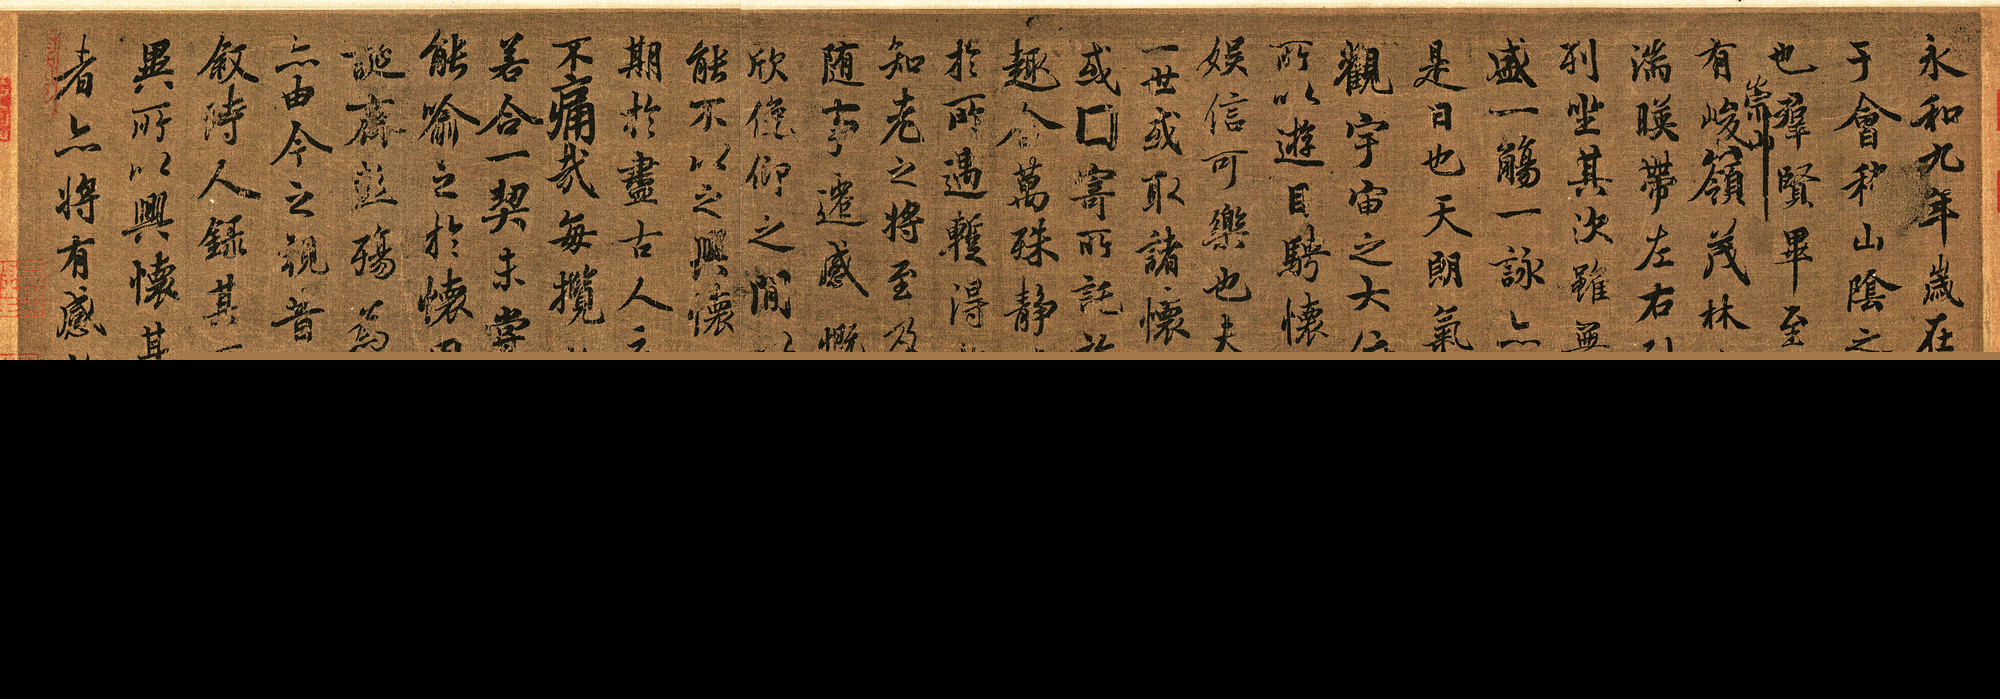 永和九年歲在
于會稽山陰之
也羣賢畢至
有崇山峻嶺茂林
湍暎帶左右
列坐其次雖無
盛一觴一詠亦
是日也天朗氣
觀宇宙之大
所以遊目騁懷
娛信可樂也夫
一世或取諸懷
或囗寄所託
趣舍萬殊静
於所遇蹔得
知老之將至及
随事遷感慨
欣俛仰之閒
能不以之興懷
期於盡古人
不痛哉每攬
若合一契未嘗
能喻之於懷
誕齊彭殤為
亦由今之視昔
敘時人録其
異所以興懷其
者亦將有感